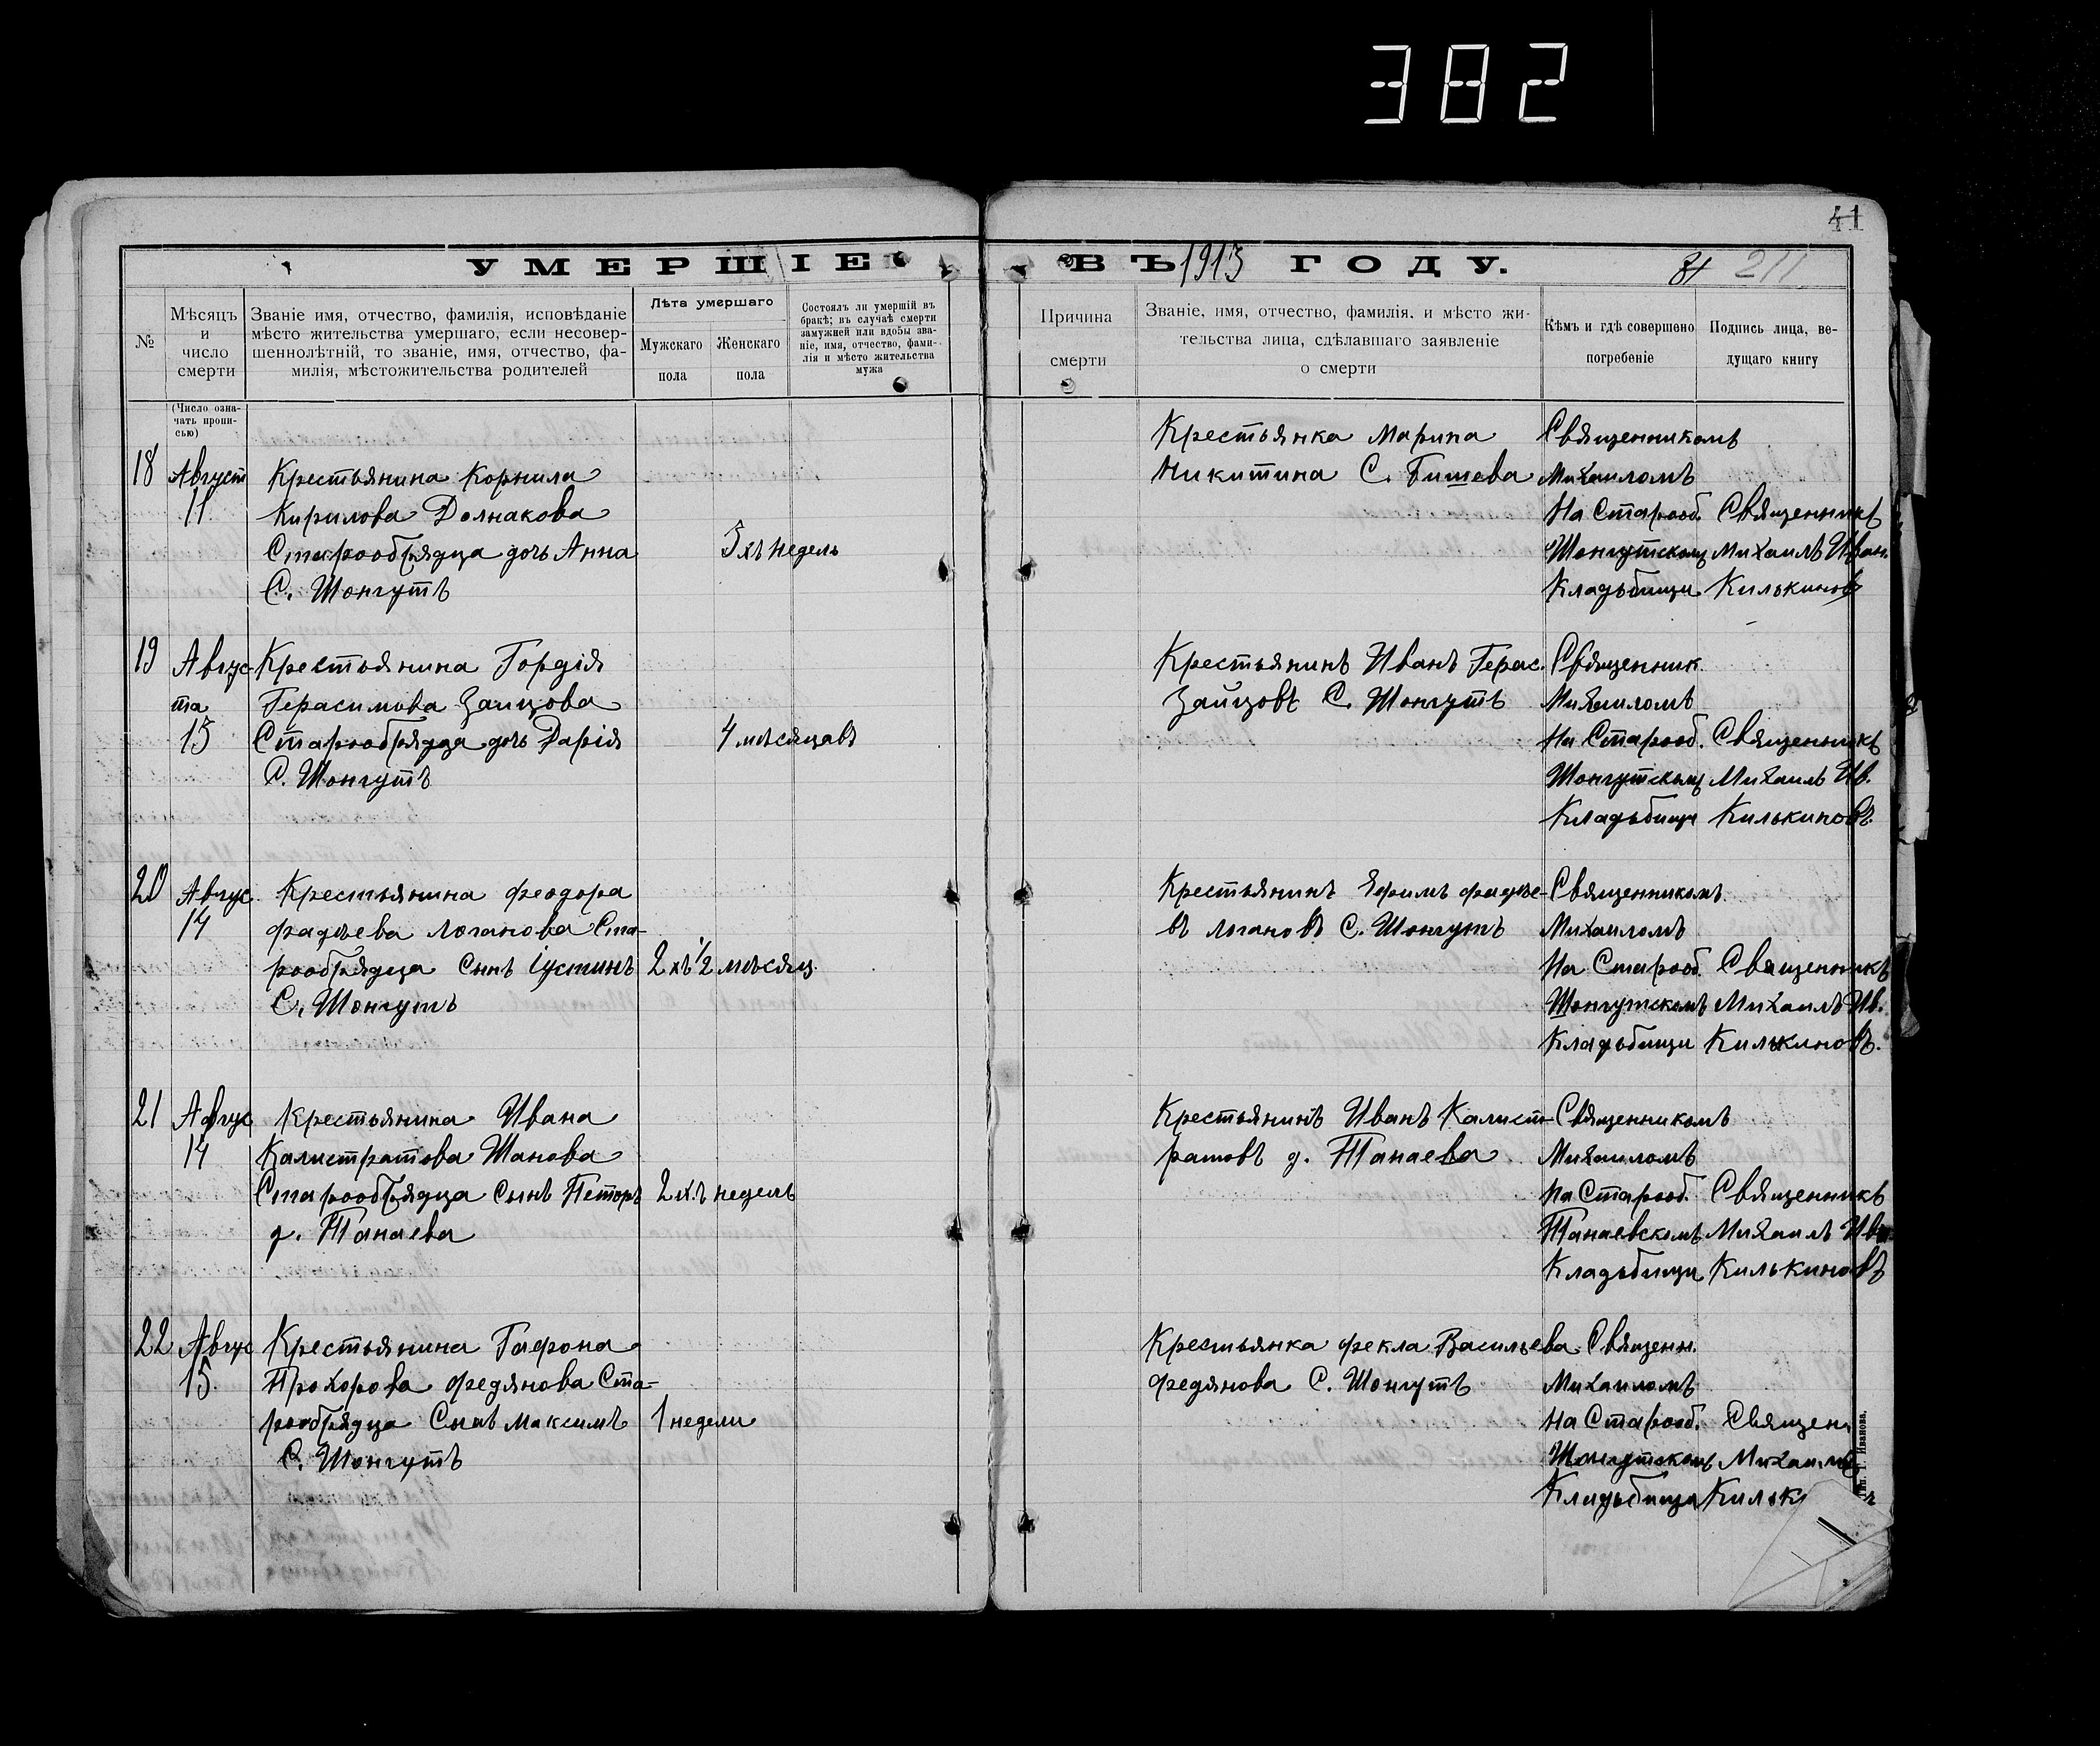 382
41
УМЕРШІЕ ВЪ 1913 ГОДУ.
211
№
Мѣсяцъ и число смерти
Званіе имя, отчество, фамилія, исповѣданіе
мѣсто жительства умершаго, если несовер-
шеннолѣтній, то званіе, имя, отчество, фа-
милія, мѣстожительства родителей
Лѣта умершаго
Мужскаго пола
Женскаго пола
Состоялъ ли умершій въ
бракѣ; въ случаѣ смерти
замужней или вдовы зва-
ніе, имя, отчество, фами-
лія и мѣсто жительства
мужа
Причина
смерти
Званіе, имя, отчество, фамилія, и мѣсто жи-
тельства лица, сдѣлавшаго заявленіе
о смерти
Кѣмъ и гдѣ совершено
погребеніе
Подпись лица, ве-
дущаго книгу
(Число озна-
чать пропи-
сью)
18 Август
11
Крестьянина Корнила
Кирилова Долнакова
Старообрядца дочь Анна
С. Шонгутъ
5хъ недель
Крестьянка Марина
Никитина С. Бишева
Священникомъ
Михаиломъ
На Старооб.
Шонгутскому
Кладьбищи
Священникъ
Михаилъ Иван.
Килькиновъ
19 Авгус-
та
15
Крестьянина Гордія
Герасимова Зайцова
Старообрядца дочь Дарія
С. Шонгутъ
4 мѣсяцавъ
Крестьянинъ Иванъ Герас.
Зайцовъ С. Шонгутъ
Священник
Михаиломъ
На Старооб.
Шонгутскому
Кладьбищи
Священникъ
Михаилъ Ив.
Килькиновъ.
20 Авгус
14
Крестьянина Феодора
Фадѣева Логанова Ста-
рообрядца Сынъ Іустинъ
С. Шонгутъ
2хъ 1/2 мѣсяц.
Крестьянинъ Ефимъ Фадѣе-
въ Логановъ С. Шонгутъ
Священникомъ
Михаиломъ
На Старооб.
Шонгутскомъ
Кладьбищи
Священникъ
Михаилъ Ив.
Килькиновъ.
21 Авгус
14
Крестьянина Ивана
Калистратова Шанова
Старообрядца Сынъ Петоръ
д. Танаева
2х.ъ недель
Крестьянинъ Иванъ Калист-
ратовъ д. Танаева
Священникомъ
Михаиломъ
На Старооб.
Танаевскомъ
Кладьбищи
Священникъ
Михаилъ Ив
Килькиновъ
22 Авгус
15.
Крестьянина Гафрона
Прохорова Федянова Ста-
рообрядца Сынъ Максимъ
С. Шонгутъ
1 недели
Крестьянка Фекла Васильева
Федянова С. Шонгутъ
Священн.
Михаиломъ
На Старооб.
Шонгутскомъ
Кладьбища
Священ
Михаилъ
Кильк
Тип. Т. Иванова.